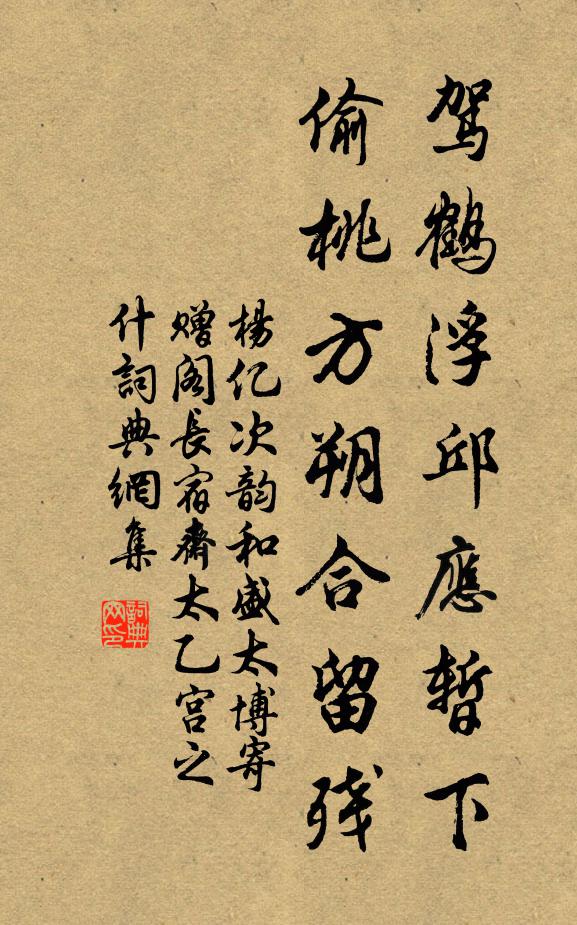 驾鶴浮邱應暫下
偷桃方朔合留残
楊亿次韵和盛太博寄
赠阁長宿齋太乙宫之
什詞典網集
詞典网印